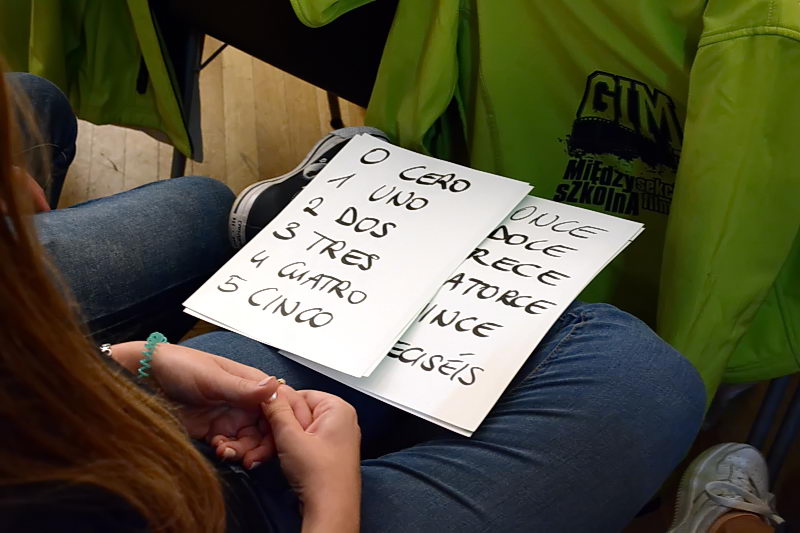 0 CERO
1 UNO
2 DOS
3 TRES
4 CUATRO
5 CINCO
ONCE
DOCE
RECE
ATORCE
INCE
ECISÉIS
GIM
MIĘDZY
SZKOLNA